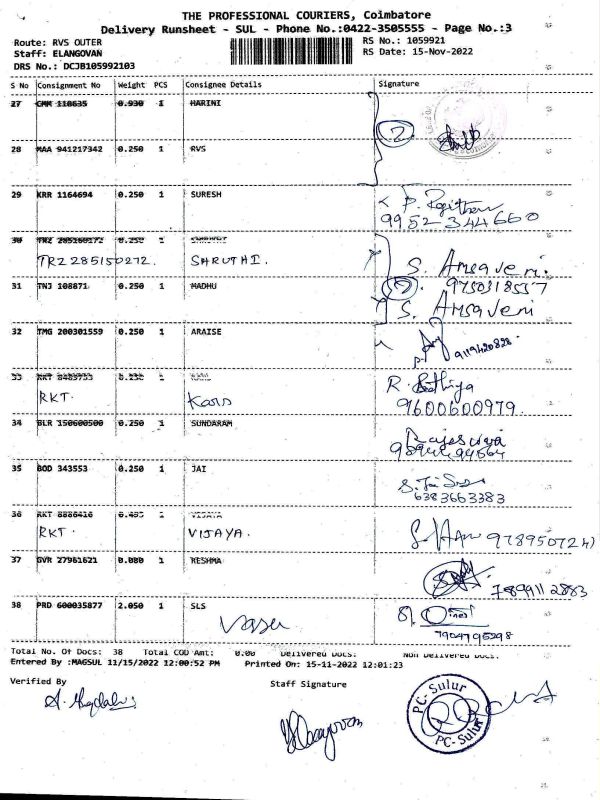 THE PROFESSIONAL COURIERS, Coimbatore
Delivery Runsheet - SUL - Phone No.:0422-3505555 - Page No.:3
Route: RVS OUTER RS No.: 1059921
Staff: ELANGOVAN RS Date: 15-Nov-2022
DRS No.: DCJB105992103
S No Consignment No Weight PCS Consignee Details Signature
27 0.930 1 HARINI
28 MAA 941217342 0.250 1 RVS
2
29 KRR 1164694 0.250 1 SURESH
9952344660
30 TRZ 285160172 0.250 1
TRZ 285150272. SHRUTHI. S. Amsaveni.
31 TNJ 108871 0.250 1 MADHU 9750318557
S. Amsaveni
32 TMG 200301559 0.250 1 ARAISE
9119420828
33 1
RKT. Kors 9600600979
34 BLR 150600500 0.250 1 SUNDARAM
35 BOD 343553 0.250 1 JAI
6383663383
36 RKT 8886416 1 VIJAYA
RKT. VIJAYA.
37 GVR 27961621 0.080 1 RESHMA
7899112883
38 PRD 600035877 2.050 1 SLS
Vasu
7904795298
Total No. Of Docs: 38 Total COD Amt: 0.00 Delivered Docs: Non Delivered Docs:
Entered By :MAGSUL 11/15/2022 12:00:52 PM Printed On: 15-11-2022 12:01:23
Verified By Staff Signature
PC-Sulur
PC-Sulur